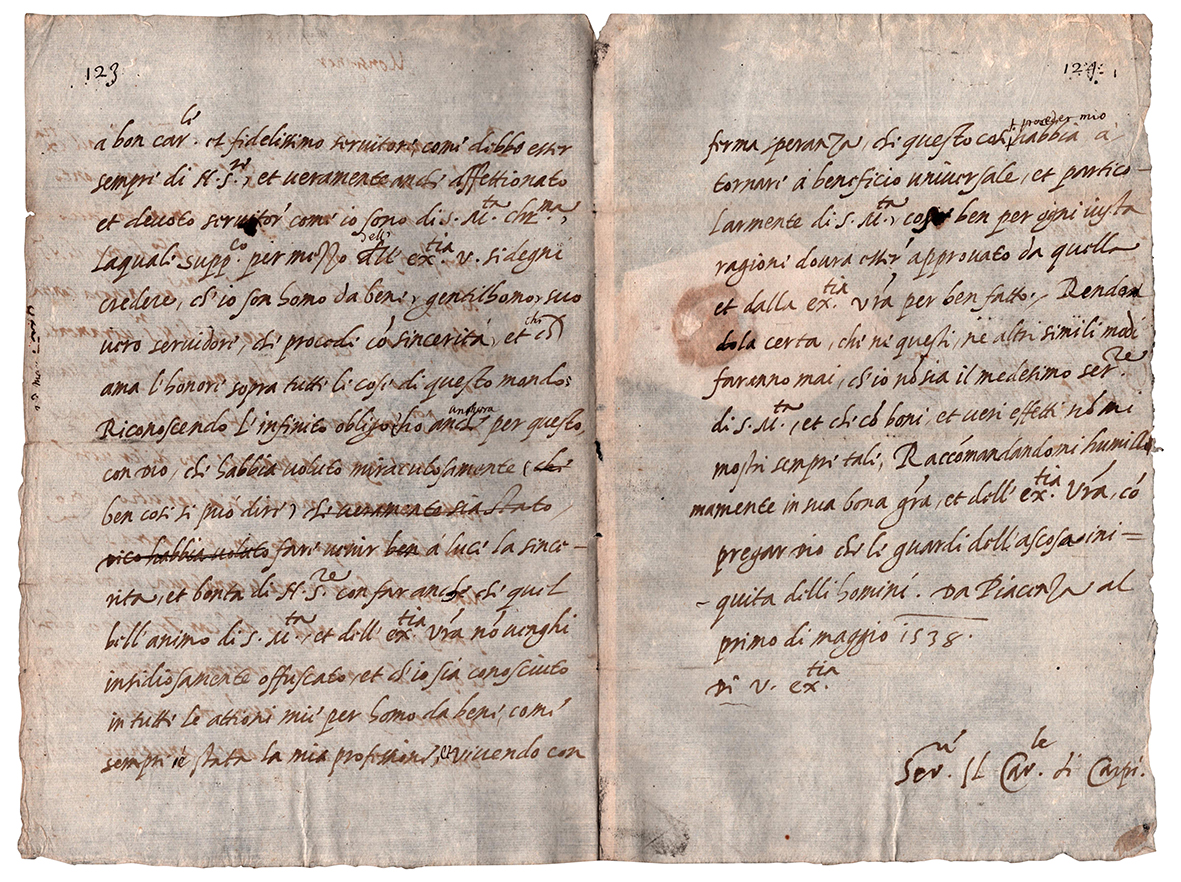 123
à bon car.le et fidelissimo servitore, come debbo esser
sempre di N. S.re, et veramente anche affettionato
et devoto servitor come io sono di S. M.ta Chr.ma,
laquale supp.co per mezzo dell' ex.tia v. si degni
credere, ch'io son homo da bene, gentilhomo, suo
vero servidore, che procede cō sincerità, et che
ama l'honore sopra tutte le cose di questo mondo:
Riconoscendo l'infinito obligo ch'ho anchora per questo,
con Dio, che habbia voluto miraculosamente, che
ben cosi si può dire, che veramente sia stato
Dico habbia voluto fare venir ben à luce la since-
rita, et bonta di N. S.re con far anche che quel
bell'animo di S. M.ta, et dell' ex.tia vrā nō venghi
insidiosamente offuscato, et ch'io sia conosciuto
in tutte le attioni mie per homo da bene, come
sempre è stata la mia professione, et vivendo con
124
ferma speranza, che questo cosi proceder mio habbia à
tornare à beneficio universale, et partico-
larmente di S. M.ta, cosi ben per ogni iusta
ragione dovra esser approvato da quella
et dalla ex.tia vrā per ben fatto. Renden
dola certa, che ne questi, ne altri simili modi
faranno mai, ch'io nō sia il medesimo ser.re
di S. M.ta, et che cō boni, et veri effetti nō mi
mostri sempre tale, Raccōmandandomi humilla
mamente in sua bona grā, et dell' ex.tia vrā, cō
pregar Dio che le guardi dell'ascosa ini=
-quita delli homini. Da Piacenza al
primo di maggio 1538.
Di V. ex.tia
Ser.re Il Car.le di Carpi.